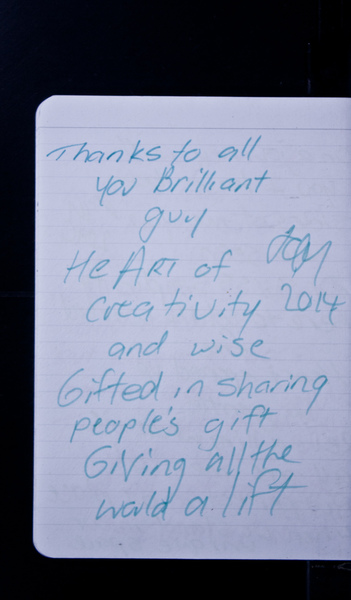 Thanks to all
you Brilliant
guy
HeART of
Creativity 2014
and wise
Gifted in sharing
people's gift
Giving all the
world a lift